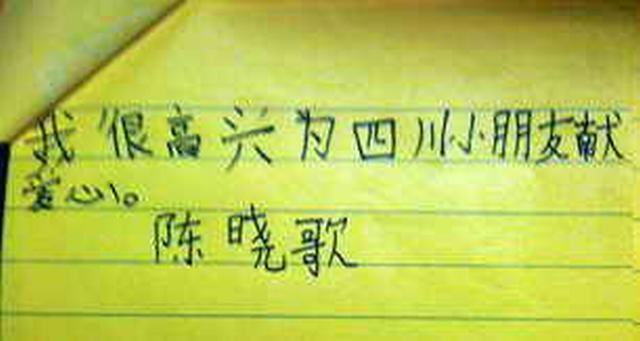 我很高兴为四川小朋友献
爱心。
陈晓歌